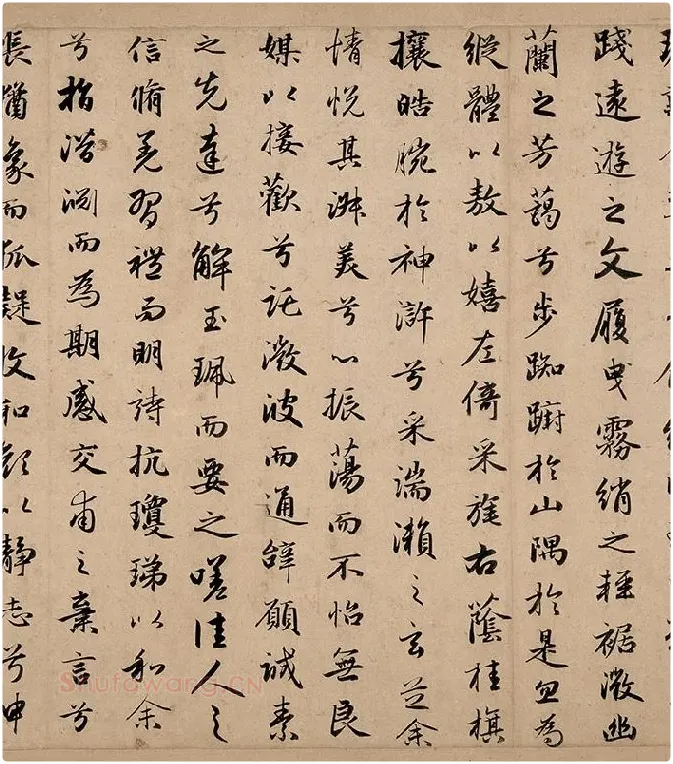 踐遠遊之文履曳霧綃之輕裾微幽
蘭之芳藹兮步踟躕於山隅於是忽焉
縱體以敖以嬉左倚采旄右蔭桂旗
攘皓腕於神滸兮采湍瀨之玄芝余
情悅其淑美兮心振蕩而不怡無良
媒以接歡兮託微波而通辭願誠素
之先達兮解玉珮而要之嗟佳人之
信脩羌習禮而明詩抗瓊珶以和余
兮指潛淵而為期感交甫之棄言兮
悵猶豫而狐疑收和顏以靜志兮申
Shufawang.CN